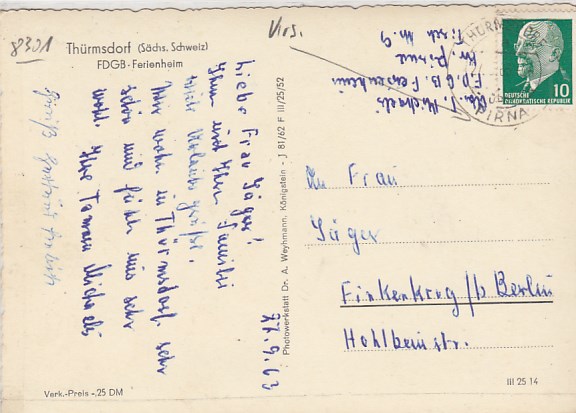 8301
Thürmsdorf (Sächs. Schweiz)
FDGB-Ferienheim
Liebe Frau Jäger!
Ihnen und Ihrer Familie
viele Urlaubsgrüße.
Hier wohn in Thürmsdorf sehr
schön und fühlen uns sehr
wohl. Ihre Tamara Michaels
22.9.63
Photowerkstatt Dr. A. Weyhmann, Königstein - J 81/62 F III/25/52
Abs. T. Michaels
F.D.G.B. Ferienheim
Kr. Pirna
Tisch Nr. 9
DEUTSCHE
DEMOKRATISCHE REPUBLIK
10
PIRNA
An Frau
Jäger
Finkenkrug /b Berlin
Hohlbeinstr.
Verk.-Preis -,25 DM
III 25 14